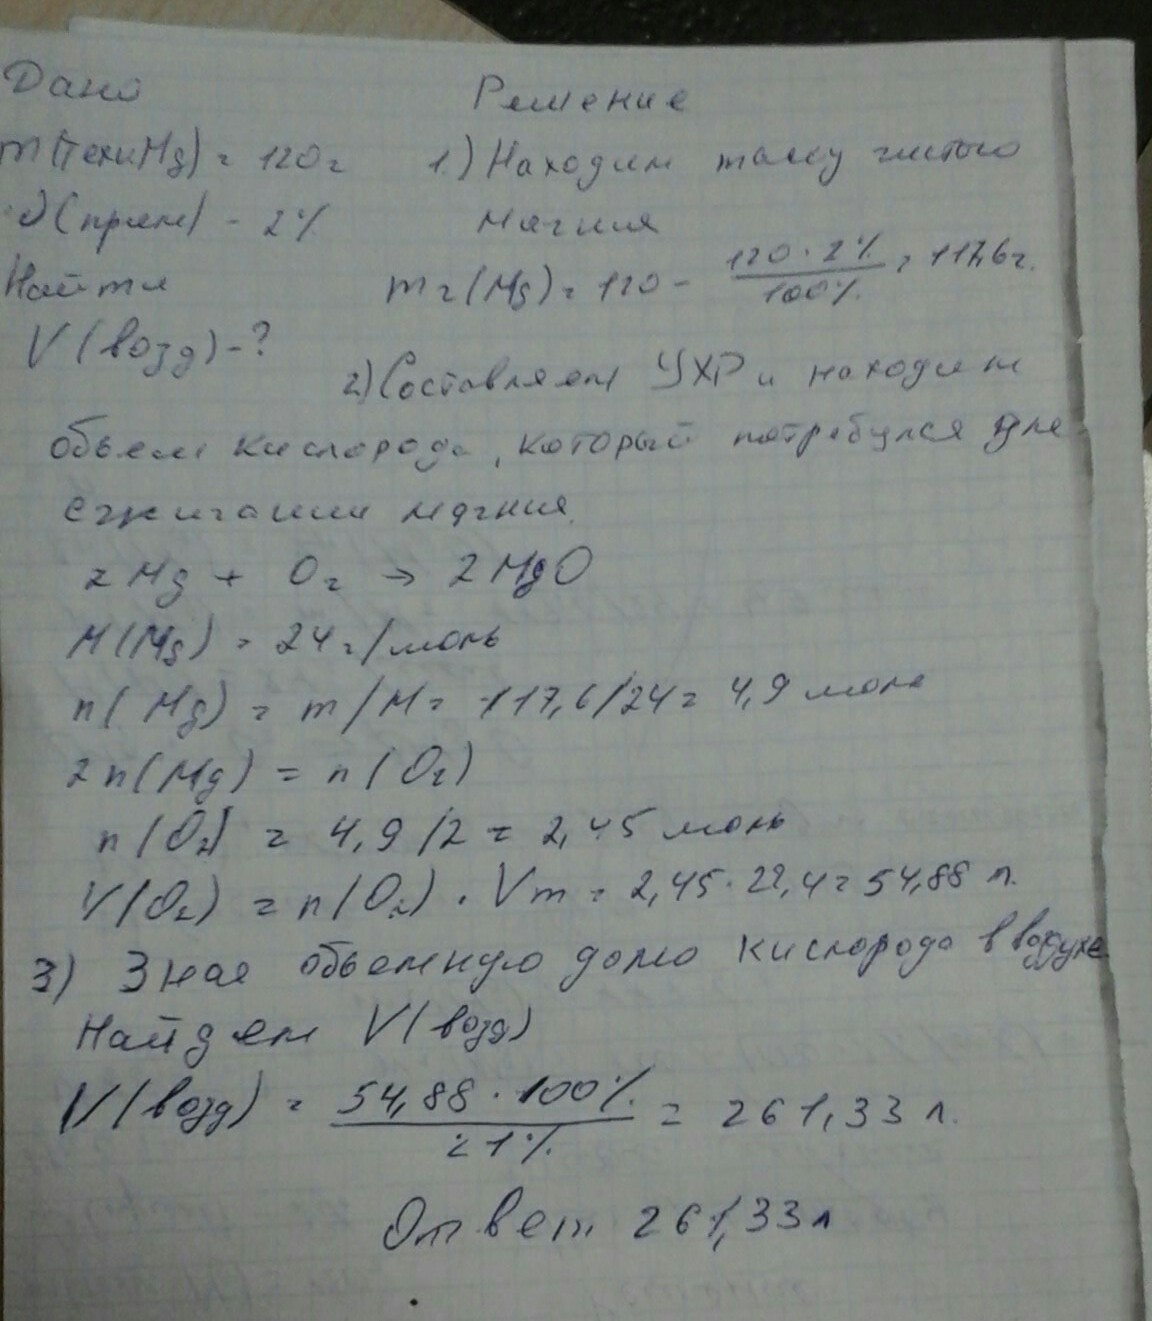 Дано Решение
m(техн Mg) = 120 г 1.) Находим массу чистого
ω(прим) - 2% магния
Найти m г(Mg) = 120 - 120 · 2% / 100% = 117,6 г.
V(возд) - ?
2) Составляем УХР и находим
объем кислорода, который потребуется для
сжигании магния.
2Mg + O₂ → 2MgO
M(Mg) = 24 г/моль
n(Mg) = m/M = 117,6/24 = 4,9 моль
2n(Mg) = n(O₂)
n(O₂) = 4,9/2 = 2,45 моль
V(O₂) = n(O₂) · Vm = 2,45 · 22,4 = 54,88 л.
3) Зная объемную долю кислорода в воздухе
Найдем V(возд)
V(возд) = 54,88 · 100% / 21% = 261,33 л.
Ответ 261,33 л